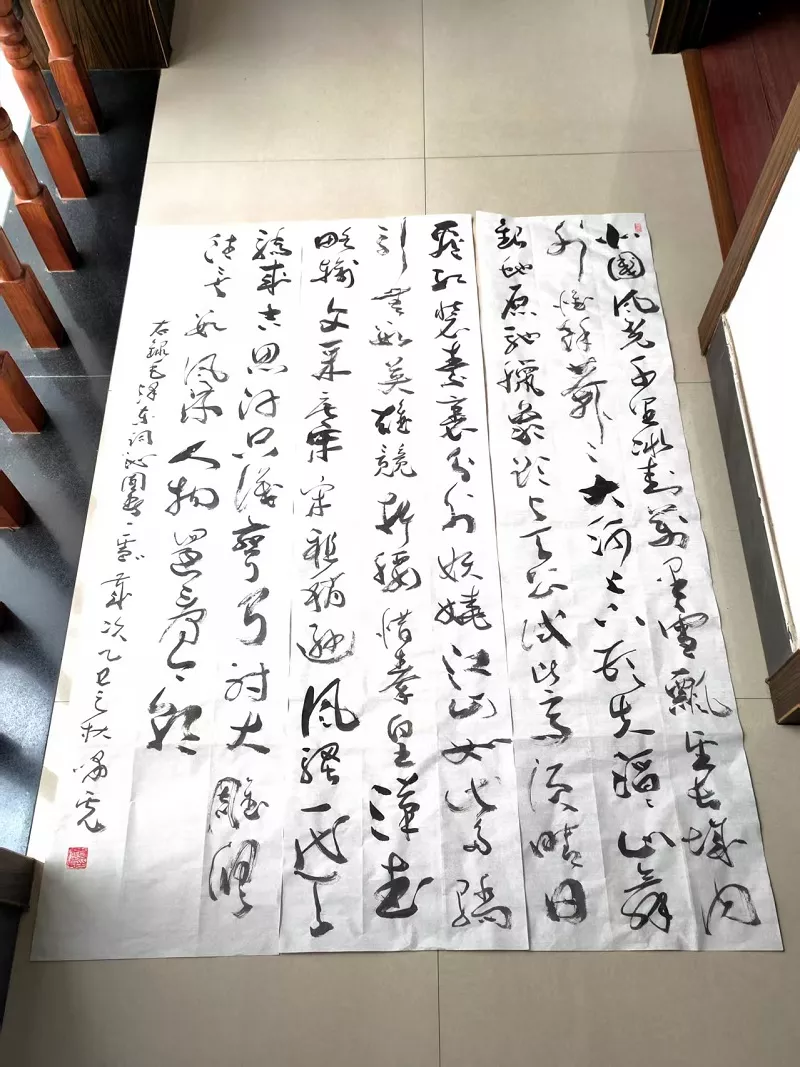 北國風光千里冰封萬里雪飄望長城内
外惟餘莽々大河上下頓失滔々山舞
銀蛇原馳蠟象欲與天公試比高須晴日
看紅裝素裹分外妖嬈江山如此多嬌
引無數英雄競折腰惜秦皇漢武
略輸文采唐宗宋祖稍遜風騷一代天
驕成吉思汗只識彎弓射大雕俱
往矣數風流人物還看今朝
右錄毛澤東詞沁園春雪歲次乙巳之秋啸虎